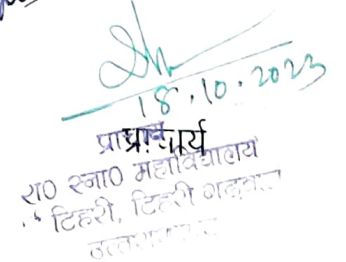 18.10.2023
प्राचार्य
रा० स्ना० महाविद्यालय
टिहरी, टिहरी गढ़वाल